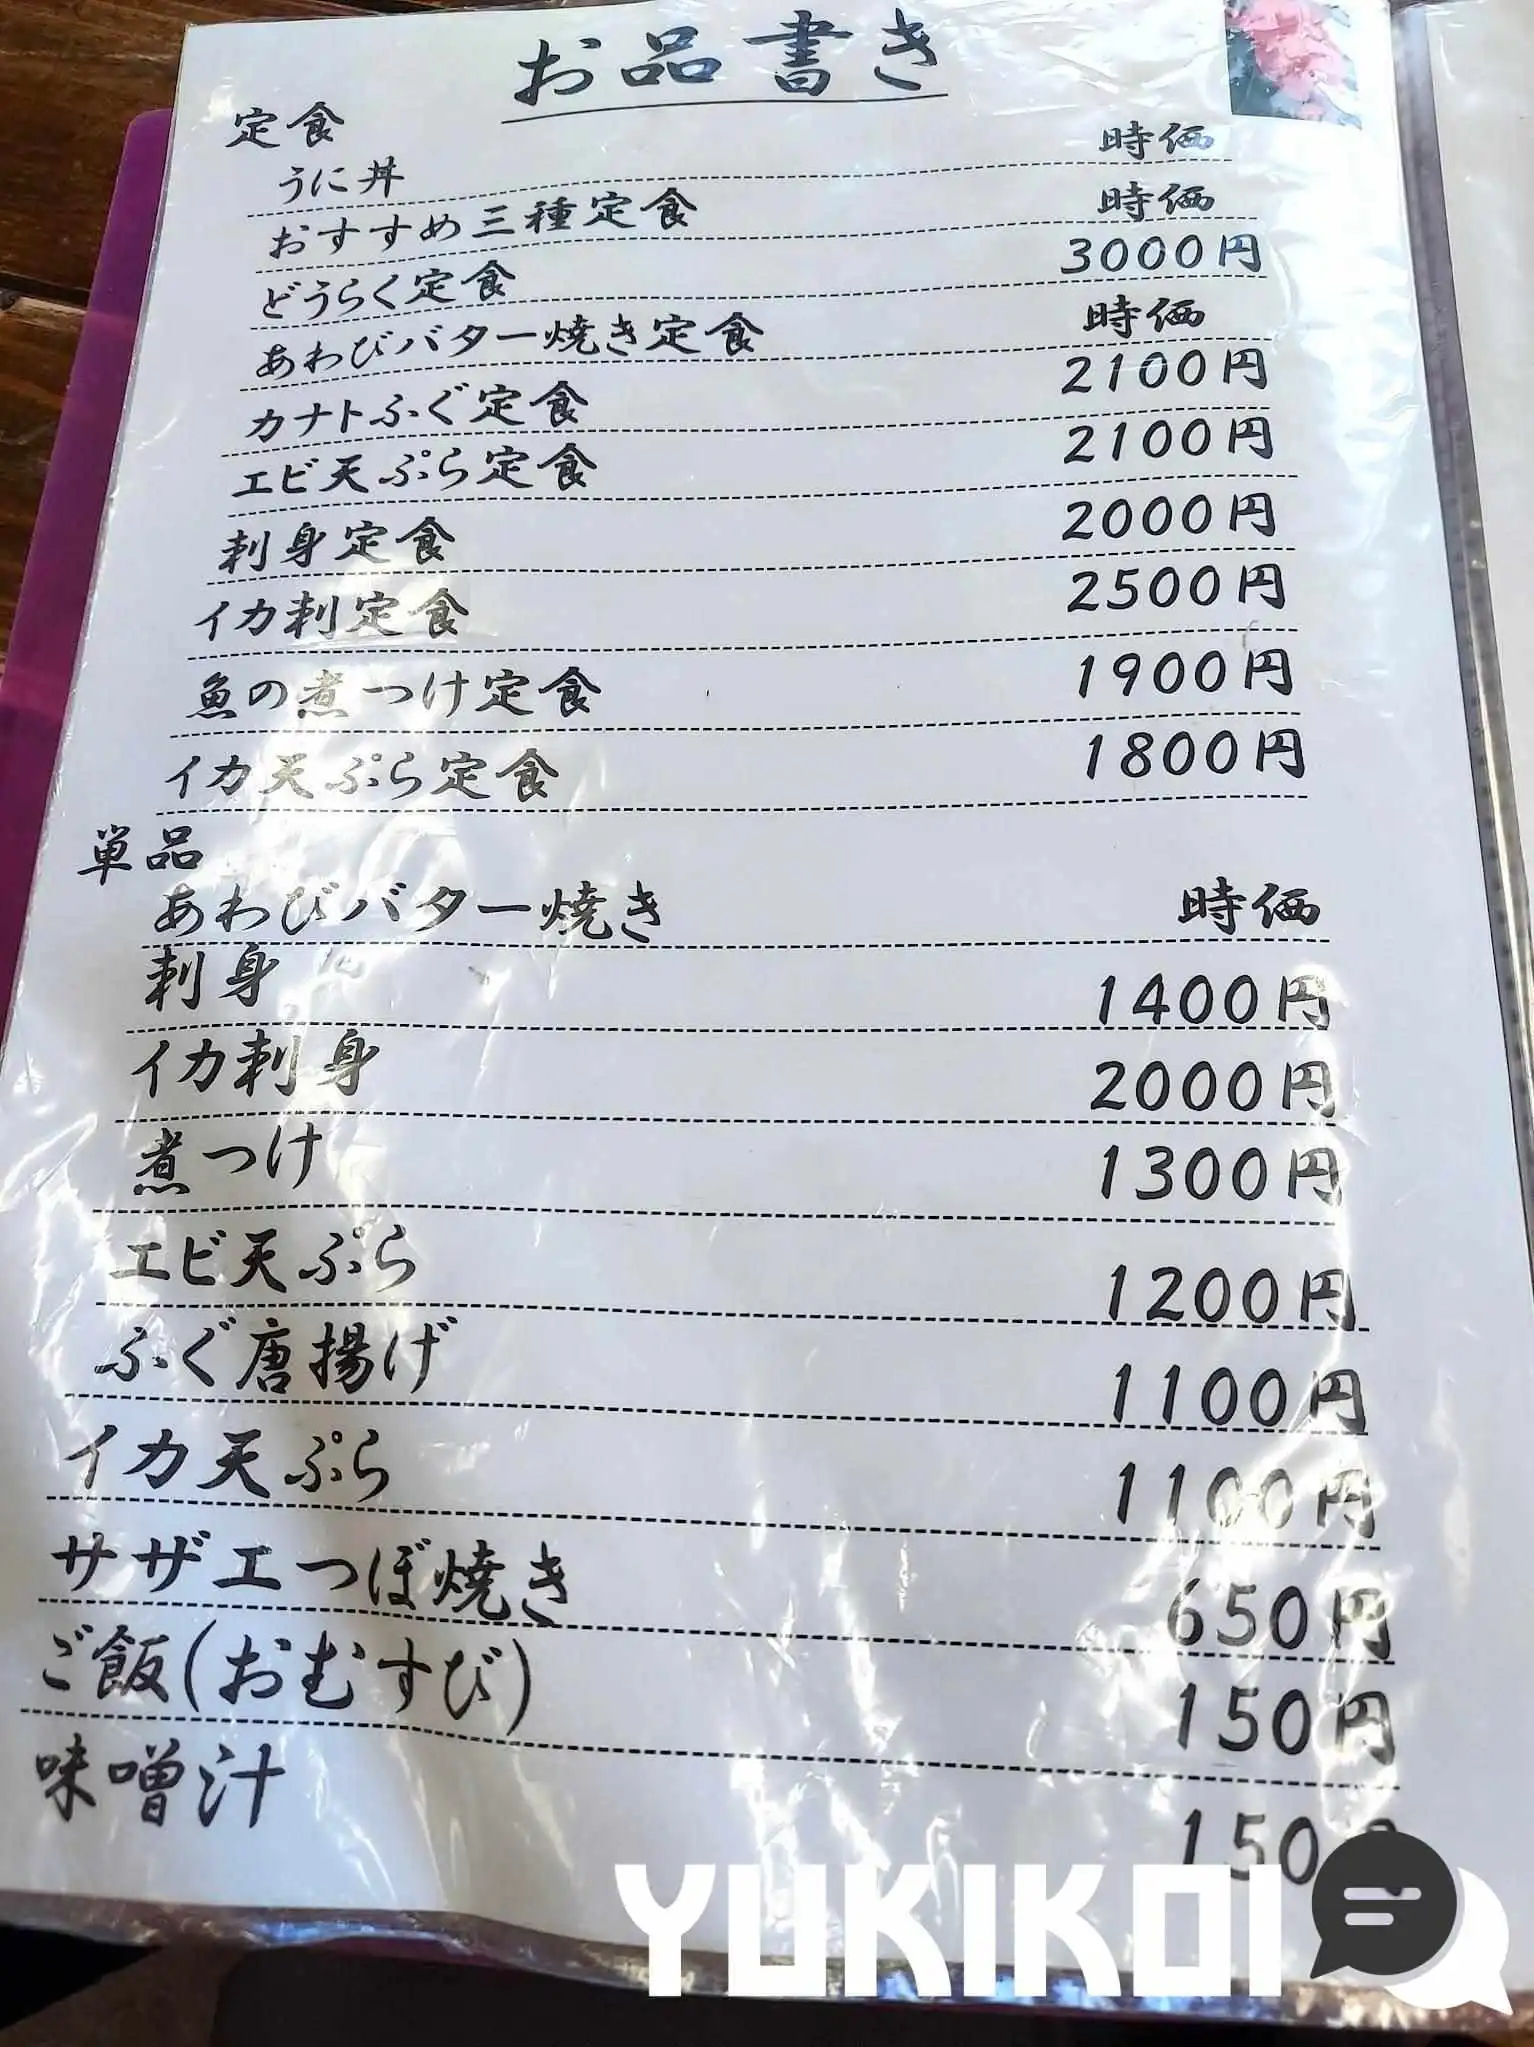 お品書き
定食
うに丼 時価
おすすめ三種定食 時価
どうらく定食 3000円
あわびバター焼き定食 時価
カナトふぐ定食 2100円
エビ天ぷら定食 2100円
刺身定食 2000円
イカ刺定食 2500円
魚の煮つけ定食 1900円
イカ天ぷら定食 1800円
単品
あわびバター焼き 時価
刺身 1400円
イカ刺身 2000円
煮つけ 1300円
エビ天ぷら 1200円
ふぐ唐揚げ 1100円
イカ天ぷら 1100円
サザエつぼ焼き 650円
ご飯(おむすび) 150円
味噌汁 150
YUKIKOI